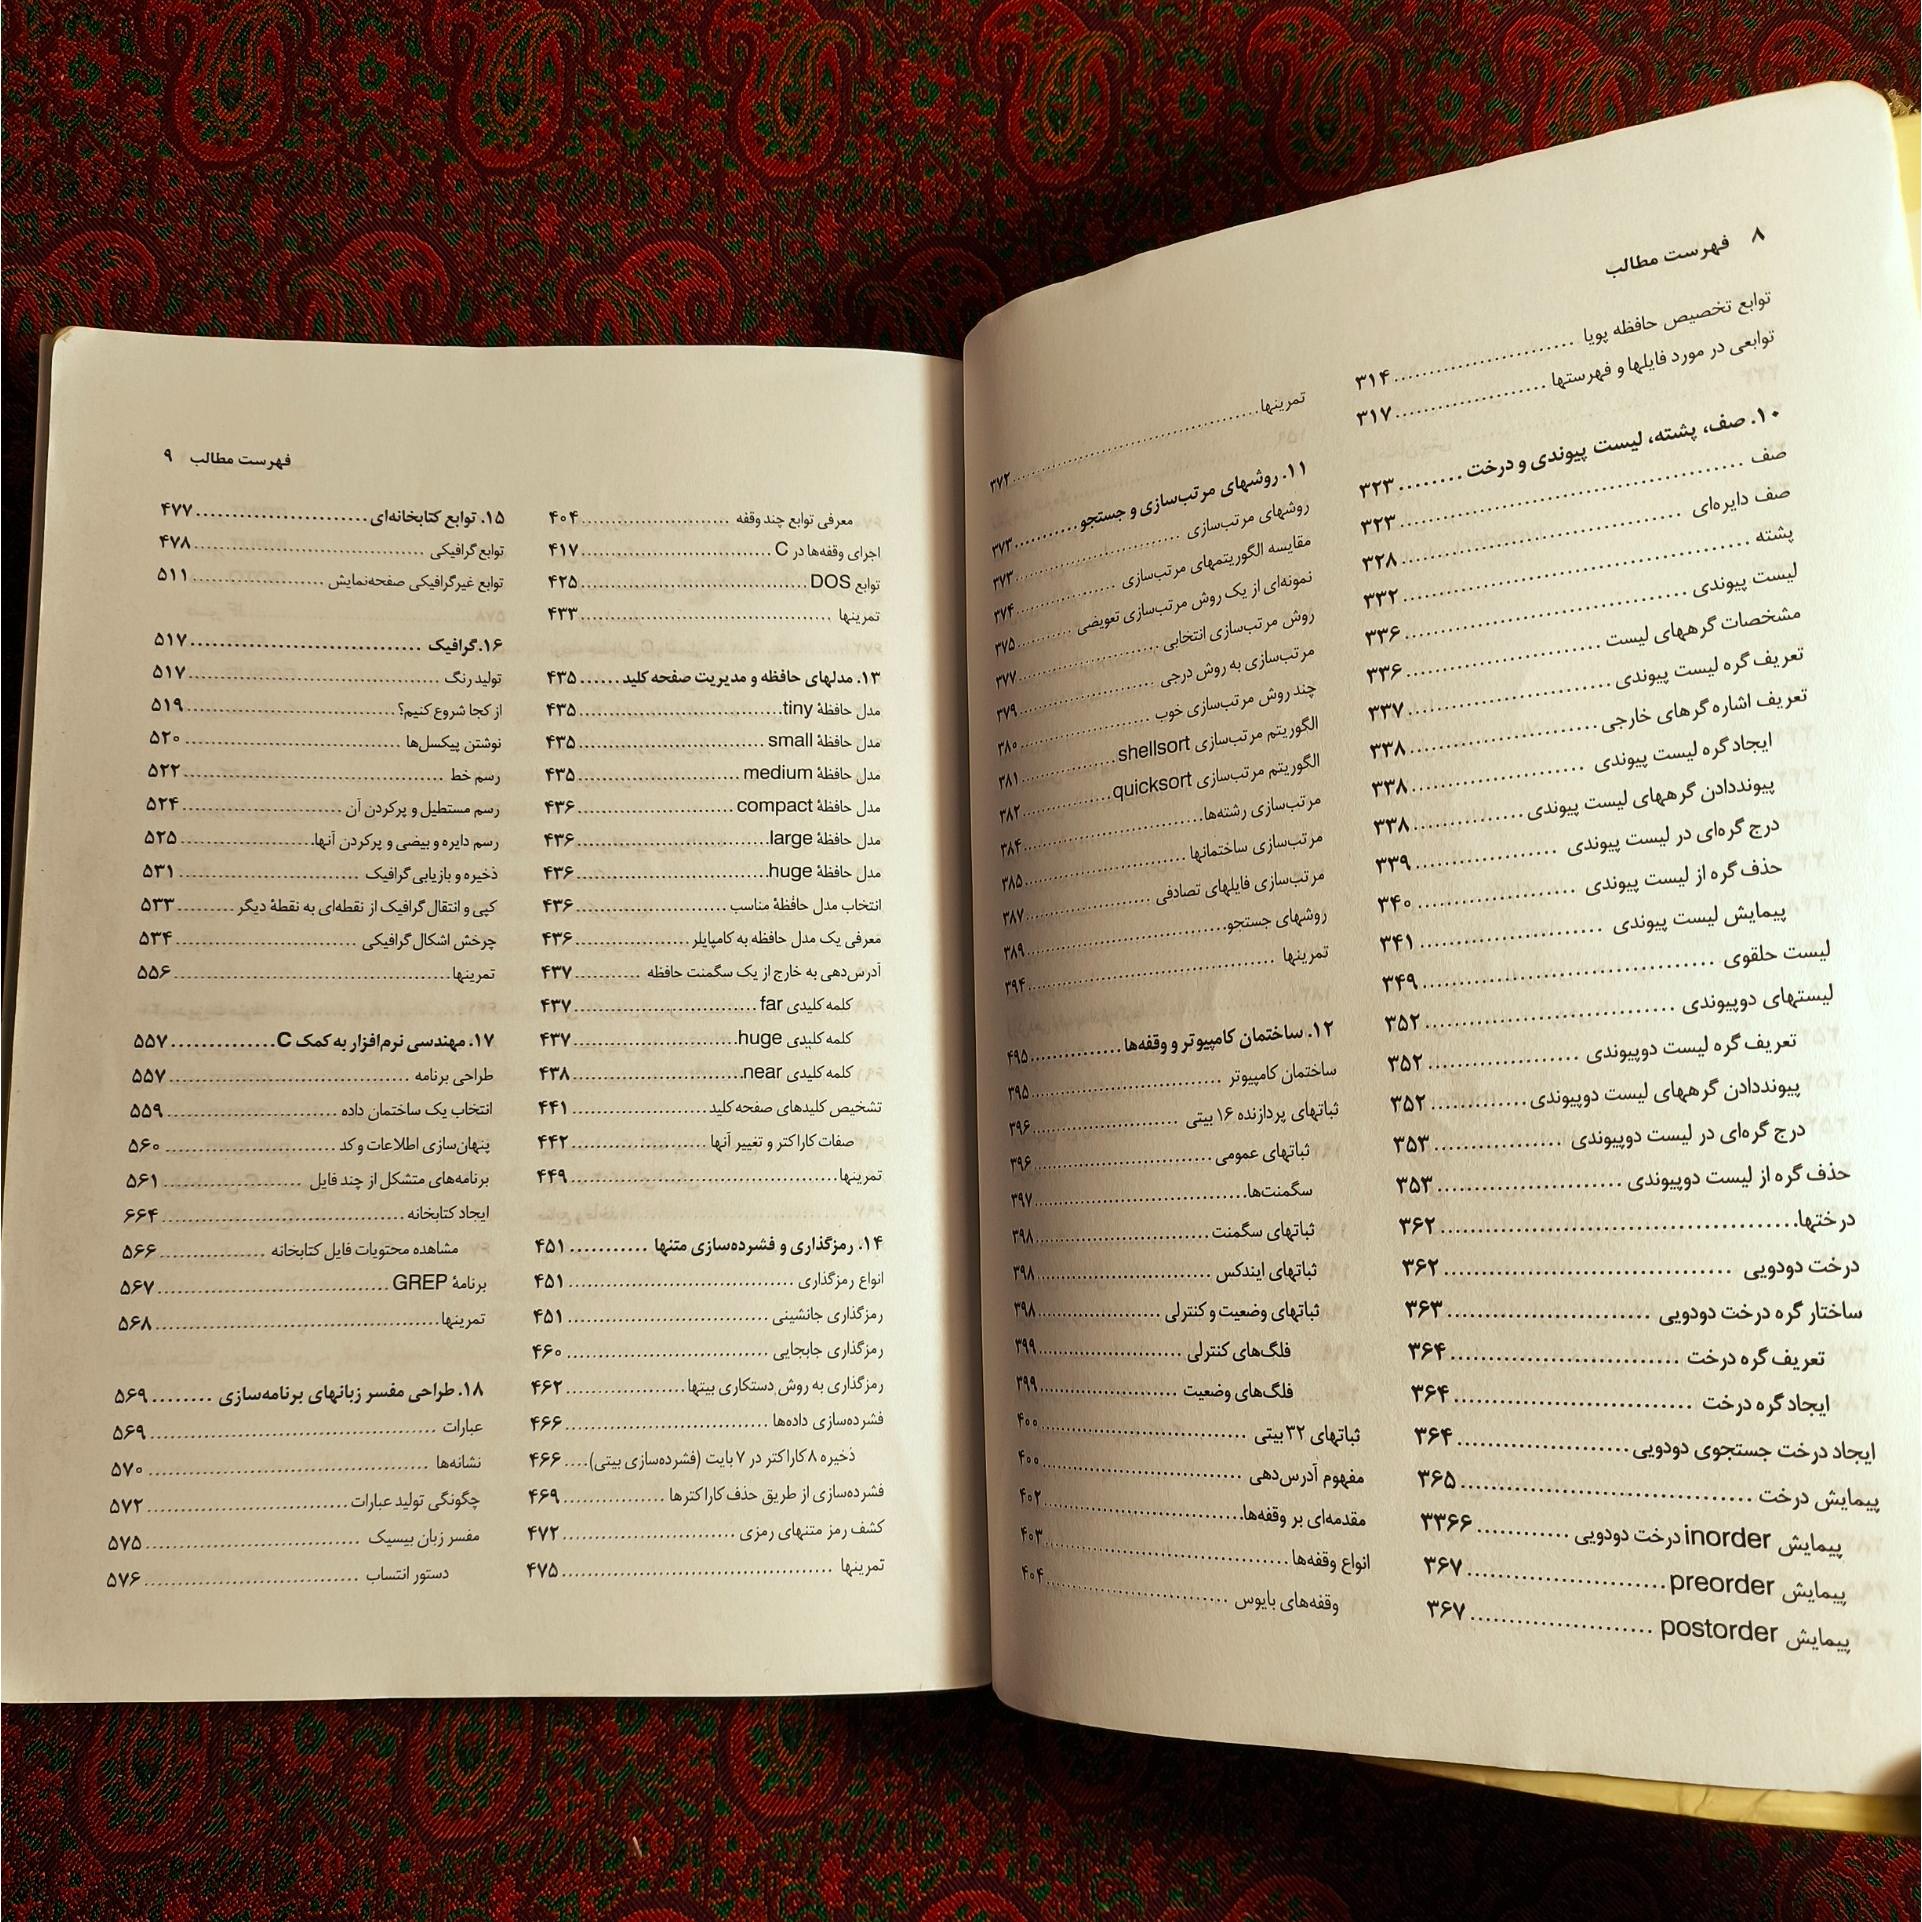 ۸ فهرست مطالب
توابع تخصیص حافظه پویا ........ ۳۱۴
توابعی در مورد فایلها و فهرستها ........ ۳۱۷
۱۰. صف، پشته، لیست پیوندی و درخت ........ ۳۲۳
صف ........ ۳۲۳
صف دایره‌ای ........ ۳۲۸
پشته ........ ۳۳۲
لیست پیوندی ........ ۳۳۶
مشخصات گرههای لیست ........ ۳۳۶
تعریف گره لیست پیوندی ........ ۳۳۷
تعریف اشاره گرهای خارجی ........ ۳۳۸
ایجاد گره لیست پیوندی ........ ۳۳۸
پیونددادن گرههای لیست پیوندی ........ ۳۳۸
درج گره‌ای در لیست پیوندی ........ ۳۳۹
حذف گره از لیست پیوندی ........ ۳۴۰
پیمایش لیست پیوندی ........ ۳۴۱
لیست حلقوی ........ ۳۴۹
لیستهای دوپیوندی ........ ۳۵۲
تعریف گره لیست دوپیوندی ........ ۳۵۲
پیونددادن گرههای لیست دوپیوندی ........ ۳۵۲
درج گره‌ای در لیست دوپیوندی ........ ۳۵۳
حذف گره از لیست دوپیوندی ........ ۳۵۳
درختها ........ ۳۶۲
درخت دودویی ........ ۳۶۲
ساختار گره درخت دودویی ........ ۳۶۳
تعریف گره درخت ........ ۳۶۴
ایجاد گره درخت ........ ۳۶۴
ایجاد درخت جستجوی دودویی ........ ۳۶۴
پیمایش درخت ........ ۳۶۵
پیمایش inorder درخت دودویی ........ ۳۳۶۶
پیمایش preorder ........ ۳۶۷
پیمایش postorder ........ ۳۶۷
تمرینها ........ ۳۷۲
۱۱. روشهای مرتب‌سازی و جستجو ........ ۳۷۳
روشهای مرتب‌سازی ........ ۳۷۳
مقایسه الگوریتمهای مرتب‌سازی ........ ۳۷۴
نمونه‌ای از یک روش مرتب‌سازی تعویضی ........ ۳۷۵
روش مرتب‌سازی انتخابی ........ ۳۷۷
مرتب‌سازی به روش درجی ........ ۳۷۹
چند روش مرتب‌سازی خوب ........ ۳۸۰
الگوریتم مرتب‌سازی shellsort ........ ۳۸۱
الگوریتم مرتب‌سازی quicksort ........ ۳۸۲
مرتب‌سازی رشته‌ها ........ ۳۸۴
مرتب‌سازی ساختمانها ........ ۳۸۵
مرتب‌سازی فایلهای تصادفی ........ ۳۸۷
روشهای جستجو ........ ۳۸۹
تمرینها ........ ۳۹۴
۱۲. ساختمان کامپیوتر و وقفه‌ها ........ ۴۹۵
ساختمان کامپیوتر ........ ۳۹۵
ثباتهای پردازنده ۱۶ بیتی ........ ۳۹۶
ثباتهای عمومی ........ ۳۹۶
سگمنت‌ها ........ ۳۹۷
ثباتهای سگمنت ........ ۳۹۸
ثباتهای ایندکس ........ ۳۹۸
ثباتهای وضعیت و کنترلی ........ ۳۹۸
فلگ‌های کنترلی ........ ۳۹۹
فلگ‌های وضعیت ........ ۳۹۹
ثباتهای ۳۲ بیتی ........ ۴۰۰
مفهوم آدرس‌دهی ........ ۴۰۰
مقدمه‌ای بر وقفه‌ها ........ ۴۰۲
انواع وقفه‌ها ........ ۴۰۳
وقفه‌های بایوس ........ ۴۰۴
فهرست مطالب ۹
معرفی توابع چند وقفه ........ ۴۰۴
اجرای وقفه‌ها در C ........ ۴۱۷
توابع DOS ........ ۴۲۵
تمرینها ........ ۴۳۳
۱۳. مدلهای حافظه و مدیریت صفحه کلید ...... ۴۳۵
مدل حافظهٔ tiny ........ ۴۳۵
مدل حافظهٔ small ........ ۴۳۵
مدل حافظهٔ medium ........ ۴۳۵
مدل حافظهٔ compact ........ ۴۳۶
مدل حافظهٔ large ........ ۴۳۶
مدل حافظهٔ huge ........ ۴۳۶
انتخاب مدل حافظهٔ مناسب ........ ۴۳۶
معرفی یک مدل حافظه به کامپایلر ........ ۴۳۶
آدرس‌دهی به خارج از یک سگمنت حافظه ........ ۴۳۷
کلمه کلیدی far ........ ۴۳۷
کلمه کلیدی huge ........ ۴۳۷
کلمه کلیدی near ........ ۴۳۸
تشخیص کلیدهای صفحه کلید ........ ۴۴۱
صفات کاراکتر و تغییر آنها ........ ۴۴۲
تمرینها ........ ۴۴۹
۱۴. رمزگذاری و فشرده‌سازی متنها ........ ۴۵۱
انواع رمزگذاری ........ ۴۵۱
رمزگذاری جانشینی ........ ۴۵۱
رمزگذاری جابجایی ........ ۴۶۰
رمزگذاری به روش دستکاری بیتها ........ ۴۶۲
فشرده‌سازی داده‌ها ........ ۴۶۶
ذخیره ۸ کاراکتر در ۷ بایت (فشرده‌سازی بیتی) .... ۴۶۶
فشرده‌سازی از طریق حذف کاراکترها ........ ۴۶۹
کشف رمز متنهای رمزی ........ ۴۷۲
تمرینها ........ ۴۷۵
۱۵. توابع کتابخانه‌ای ........ ۴۷۷
توابع گرافیکی ........ ۴۷۸
توابع غیرگرافیکی صفحه‌نمایش ........ ۵۱۱
۱۶. گرافیک ........ ۵۱۷
تولید رنگ ........ ۵۱۷
از کجا شروع کنیم؟ ........ ۵۱۹
نوشتن پیکسل‌ها ........ ۵۲۰
رسم خط ........ ۵۲۲
رسم مستطیل و پرکردن آن ........ ۵۲۴
رسم دایره و بیضی و پرکردن آنها ........ ۵۲۵
ذخیره و بازیابی گرافیک ........ ۵۳۱
کپی و انتقال گرافیک از نقطه‌ای به نقطهٔ دیگر ........ ۵۳۳
چرخش اشکال گرافیکی ........ ۵۳۴
تمرینها ........ ۵۵۶
۱۷. مهندسی نرم‌افزار به کمک C ........ ۵۵۷
طراحی برنامه ........ ۵۵۷
انتخاب یک ساختمان داده ........ ۵۵۹
پنهان‌سازی اطلاعات و کد ........ ۵۶۰
برنامه‌های متشکل از چند فایل ........ ۵۶۱
ایجاد کتابخانه ........ ۶۶۴
مشاهده محتویات فایل کتابخانه ........ ۵۶۶
برنامهٔ GREP ........ ۵۶۷
تمرینها ........ ۵۶۸
۱۸. طراحی مفسر زبانهای برنامه‌سازی ........ ۵۶۹
عبارات ........ ۵۶۹
نشانه‌ها ........ ۵۷۰
چگونگی تولید عبارات ........ ۵۷۲
مفسر زبان بیسیک ........ ۵۷۵
دستور انتساب ........ ۵۷۶